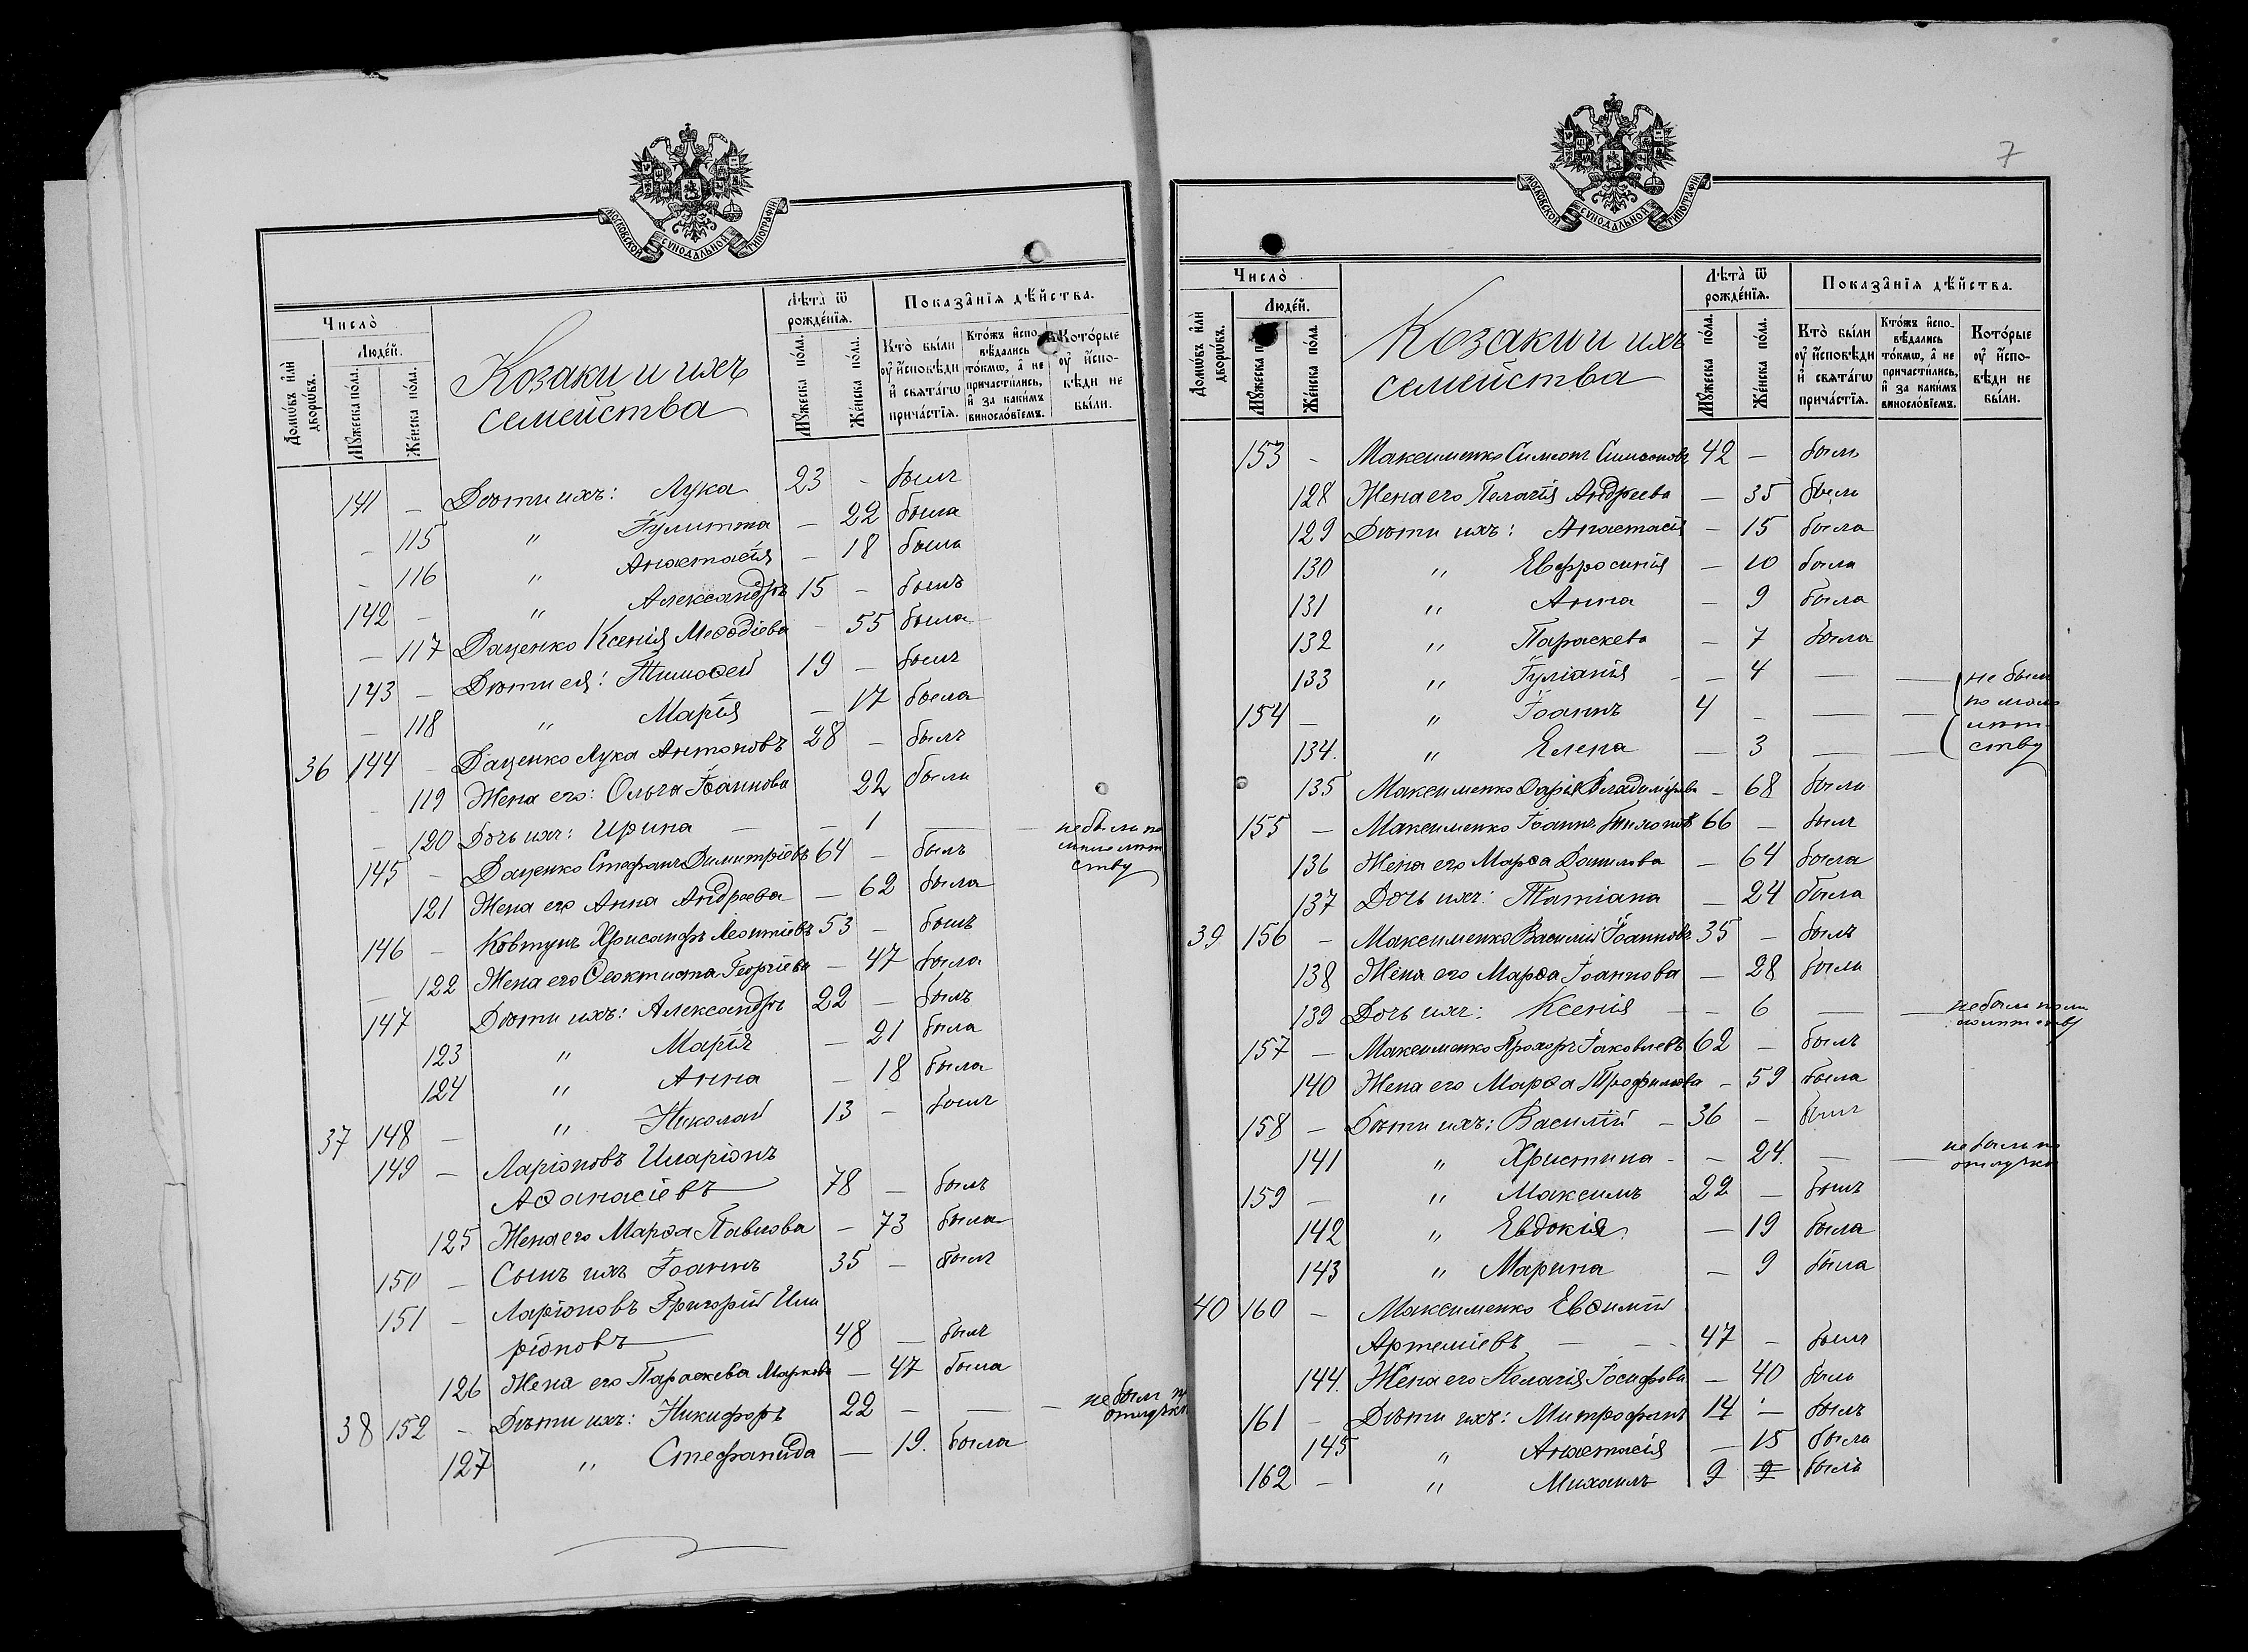 МОСКОВСКОЙ СѴНОДАЛЬНОЙ ТИПОГРАФІИ
Число̀
Домѡ́въ и҆лѝ дворѡ́въ.
Люде́й.
Мꙋ́жеска по́ла.
Же́нска по́ла.
Козаки и ихъ
семейства
Лѣта̀ ѿ рожде́нїѧ.
Мꙋ́жеска по́ла.
Же́нска по́ла.
Показа̑нїѧ дѣ́йства.
Кто̀ бы́ли ᲂу҆ и҆сповѣ́ди и҆ свѧта́гѡ прича́стїѧ.
Кто́жъ и҆спо-вѣ́дались то́кмѡ, а҆ не причасти́лись, и҆ за каки́мъ винословїемъ.
Кото́рые ᲂу҆ и҆спо-вѣ́ди не бы́ли.
141 - Дѣти ихъ: Лука 23 - былъ
- 115 " Іулитта - 22 была
- 116 " Анастасія - 18 была
142 - " Александръ 15 - былъ
- 117 Даценко Ксенія Меѳодіева - 55 была
143 - Дѣти ея: Тимоѳей 19 - былъ
- 118 " Марія - 17 была
36 144 - Даценко Лука Антоновъ 28 - былъ
- 119 Жена его: Ольга Іоаннова 22 была
- 120 Дочь ихъ: Ирина - - 1 - - не была по
малолѣт
ству
145 - Даценко Стефанъ Димитріевъ 64 - былъ
121 Жена его Анна Андреева - 62 была
146 - Ковтунъ Хрисанфъ Леонтіевъ 53 - былъ
- 122 Жена его Ѳеоктиста Георгіева - 47 была
147 Дѣти ихъ: Александръ 22 - былъ
123 " Марія - 21 была
124 " Анна - 18 была
37 148 - " Николай 13 - былъ
149 - Ларіоновъ Иларіонъ
Аѳанасіевъ 78 - былъ
125 Жена его Марѳа Павлова - 73 была
150 - Сынъ ихъ Іоаннъ 35 - былъ
151 - Ларіоновъ Григорій Ила
ріоновъ 48 - былъ
126 Жена его Параскева Маркова - 47 была
38 152 - Дѣти ихъ: Никифоръ 22 - - - не былъ п
отлучкѣ
127 " Стефанида - 19. была
7
МОСКОВСКОЙ СѴНОДАЛЬНОЙ ТИПОГРАФІИ
Число̀
Домѡ́въ и҆лѝ дворѡ́въ.
Люде́й.
Мꙋ́жеска по́ла.
Же́нска по́ла.
Козаки и ихъ
семейства
Лѣта̀ ѿ рожде́нїѧ.
Мꙋ́жеска по́ла.
Же́нска по́ла.
Показа̑нїѧ дѣ́йства.
Кто̀ бы́ли ᲂу҆ и҆сповѣ́ди и҆ свѧта́гѡ прича́стїѧ.
Кто́жъ и҆спо-вѣ́дались то́кмѡ, а҆ не причасти́лись, и҆ за каки́мъ винословїемъ.
Кото́рые ᲂу҆ и҆спо-вѣ́ди не бы́ли.
153 - Максименко Симеонъ Симеоновъ 42 - былъ
128 Жена его Пелагія Андреева - 35 была
129 Дѣти ихъ: Анастасія - 15 была
130 " Евфросинія - 10 была
131 " Анна - 9 была
132 " Параскева - 7 была
133 " Іуліанія - - 4 - - не были
154 - " Іоаннъ 4 - - - по мало
лѣт-
134. " Елена - 3 - - ству
135 Максименко Дарія Владимірова - 68 была
155 - Максименко Іоаннъ 66 - былъ
136 Жена его Марѳа Данилова - 64 была
137 Дочь ихъ: Татіана - 24 была
39 156 - Максименко Василій Іоанновъ 35 - былъ
138 Жена его Марѳа Іоаннова - 28 была
139 Дочь ихъ: Ксенія - - 6 - - не была по ма
лолѣтству
157 - Максименко Прохоръ Іаковлевъ 62 - былъ
140 Жена его Марѳа Трофимова - 59 была
158 - Дѣти ихъ: Василій - 36 - былъ
141 " Христина - - 24. - - не была по
отлучкѣ
159 - " Максимъ 22 - былъ
142 " Евдокія - 19 была
143 " Марина - 9 была
40 160 - Максименко Евѳимій
Артеміевъ - - 47 - былъ
144. Жена его Пелагія Іосифова - 40 была
161 - Дѣти ихъ: Митрофанъ 14 - былъ
145 " Анастасія - 15 была
162 - " Михаилъ 9 9 былъ